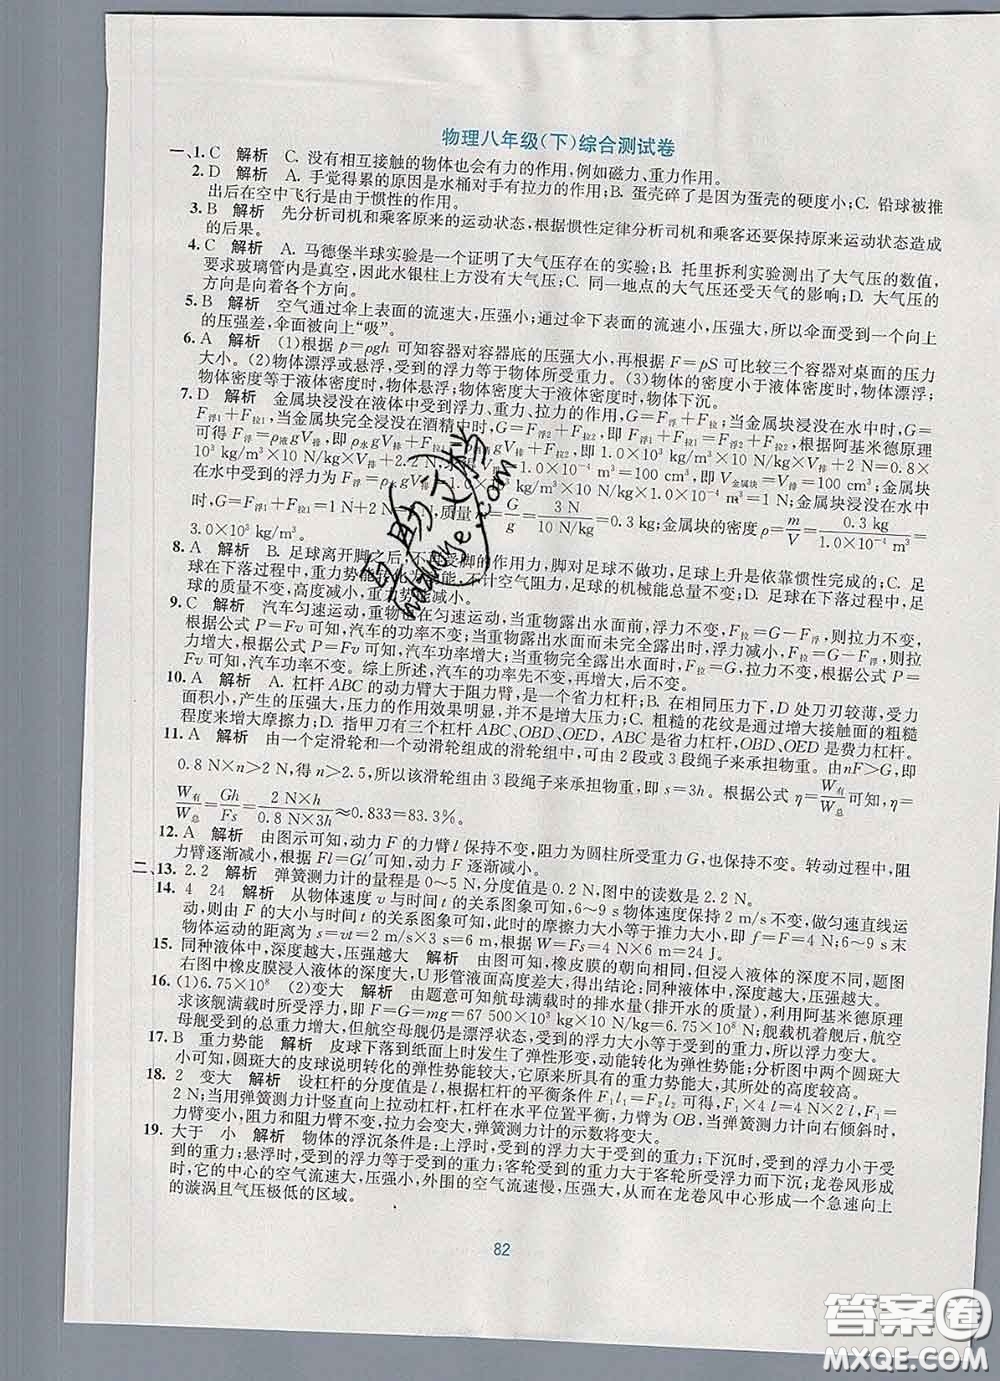 物理八年级(下)综合测试卷
一、1. C 解析 C. 没有相互接触的物体也会有力的作用,例如磁力、重力作用。
2. D 解析 A. 手觉得累的原因是水桶对手有拉力的作用;B. 蛋壳碎了是因为蛋壳的硬度小;C. 铅球被推
出后在空中飞行是由于惯性的作用。
3. B 解析 先分析司机和乘客原来的运动状态,根据惯性定律分析司机和乘客还要保持原来运动状态造成
的后果。
4. C 解析 A. 马德堡半球实验是一个证明了大气压存在的实验;B. 托里拆利实验测出了大气压的数值,
要求玻璃管内是真空,因此水银柱上方没有大气压;C. 同一地点的大气压还受天气的影响;D. 大气压的
方向是向着各个方向。
5. B 解析 空气通过伞上表面的流速大,压强小;通过伞下表面的流速小,压强大,所以伞面受到一个向上
的压强差,伞面被向上“吸”。
6. A 解析 (1)根据 p=ρgh 可知容器对容器底的压强大小,再根据 F=pS 可比较三个容器对桌面的压力
大小。(2)物体漂浮或悬浮,受到的浮力等于物体所受重力。(3)物体的密度小于液体密度时,物体漂浮;
物体密度等于液体密度时,物体悬浮;物体密度大于液体密度时,物体下沉。
7. D 解析 金属块浸没在液体中受到浮力、重力、拉力的作用,G=F浮+F拉;当金属块浸没在水中时,G=
F浮1+F拉1,当金属块完全浸没在酒精中时,G=F浮2+F拉2,即 F浮1+F拉1=F浮2+F拉2,根据阿基米德原理
可得 F浮=ρ液gV排,即 ρ水gV排+F拉1=ρ酒精gV排+F拉2,即 1.0×10³ kg/m³×10 N/kg×V排+2 N=0.8×
10³ kg/m³×10 N/kg×V排+2.2 N,求得 V排=1.0×10⁻⁴ m³=100 cm³,即 V金属块=V排=100 cm³;金属块
在水中受到的浮力为 F浮=ρ水gV排=1.0×10³ kg/m³×10 N/kg×1.0×10⁻⁴ m³=1 N;金属块浸没在水中
时,G=F浮+F拉=1 N+2 N=3 N,质量 m=G/g=3 N/10 N/kg=0.3 kg;金属块的密度 ρ=m/V=0.3 kg/1.0×10⁻⁴ m³=
3.0×10³ kg/m³。
8. A 解析 B. 足球离开脚之后,不再受脚的作用力,脚对足球不做功,足球上升是依靠惯性完成的;C. 足
球在下落过程中,重力势能转化为动能,不计空气阻力,足球的机械能总量不变;D. 足球在下落过程中,足
球的质量不变,高度减小,重力势能减小。
9. C 解析 汽车匀速运动,重物也在匀速运动,当重物露出水面前,浮力不变,F拉=G-F浮,则拉力不变,
根据公式 P=Fv 可知,汽车的功率不变;当重物露出水面而未完全露出时,浮力减小,F拉=G-F浮,则拉
力增大,根据公式 P=Fv 可知,汽车的功率增大;当重物完全露出水面后,F拉=G,拉力不变,根据公式 P=Fv
可知,汽车功率不变。综上所述,汽车的功率先不变,再增大,后不变。
10. A 解析 A. 杠杆 ABC 的动力臂大于阻力臂,是一个省力杠杆;B. 在相同压力下,D 处刀刃较薄,受力
面积小,产生的压强大,压力的作用效果明显,并不是增大压力;C. 粗糙的花纹是通过增大接触面的粗糙
程度来增大摩擦力;D. 指甲刀有三个杠杆 ABC、OBD、OED,ABC 是省力杠杆,OBD、OED 是费力杠杆。
11. A 解析 由一个定滑轮和一个动滑轮组成的滑轮组中,可由 2 段或 3 段绳子来承担物重。由nF>G,即
0.8 N×n>2 N,得 n>2.5,所以该滑轮组由 3 段绳子来承担物重,即 s=3h。根据公式 η=W有/W总 可知,η=
W有/W总=Gh/Fs=2 N×h/0.8 N×3h≈0.833=83.3%。
12. A 解析 由图示可知,动力 F 的力臂 l 保持不变,阻力为圆柱所受重力 G,也保持不变。转动过程中,阻
力臂逐渐减小,根据 Fl=Gl′可知,动力 F 逐渐减小。
二、13. 2.2 解析 弹簧测力计的量程是 0~5 N,分度值是 0.2 N,图中的读数是 2.2 N。
14. 4 24 解析 从物体速度 v 与时间 t 的关系图象可知,6~9 s物体的速度保持 2 m/s 不变,做匀速直线运
动,则由 F 的大小与时间 t 的关系图象可知,此时的摩擦力大小等于推力大小,即 f=F=4 N;6~9 s 末
物体运动的距离为 s=vt=2 m/s×3 s=6 m,根据 W=Fs=4 N×6 m=24 J。
15. 同种液体中,深度越大,压强越大 解析 由图可知,橡皮膜的朝向相同,但浸入液体的深度不同,题图
右图中橡皮膜浸入液体的深度大,U 形管液面高度差大,得出结论:同种液体中,深度越大,压强越大。
16. (1)6.75×10⁸ (2)变大 解析 由题意可知航母满载时的排水量(排开水的质量),利用阿基米德原理
求该舰满载时所受浮力,即 F=G=mg=67 500×10³ kg×10 N/kg=6.75×10⁸ N;舰载机着舰后,航空
母舰受到的总重力增大,但航空母舰仍是漂浮状态,受到的浮力大小等于受到的重力,所以浮力变大。
17. B 重力势能 解析 皮球下落到纸面上时发生了弹性形变,动能转化为弹性势能;分析图中两个圆斑大
小可知,圆斑大的皮球说明转化的弹性势能较大,它原来具有的重力势能较大,其所处的高度较高。
18. 2 变大 解析 设杠杆的分度值是 l,根据杠杆的平衡条件 F₁l₁=F₂l₂ 可得,F₁×4l=4 N×2l,F₁=
2 N;当用弹簧测力计竖直向上拉动杠杆,杠杆在水平位置平衡,力臂为 OB,当弹簧测力计向右倾斜时,
力臂变小,阻力和阻力臂不变,拉力会变大,弹簧测力计的示数将变大。
19. 大于 小 解析 物体的浮沉条件是:上浮时,受到的浮力大于受到的重力;下沉时,受到的浮力小于受
到的重力;悬浮时,受到的浮力等于受到的重力;客轮受到的重力大于客轮所受浮力而下沉;龙卷风形成
时,它的中心的空气流速大,压强小,外围的空气流速慢,压强大,从而在龙卷风中心形成一个急速向上
的漩涡且气压极低的区域。
82
答案卷
MXQE.COM